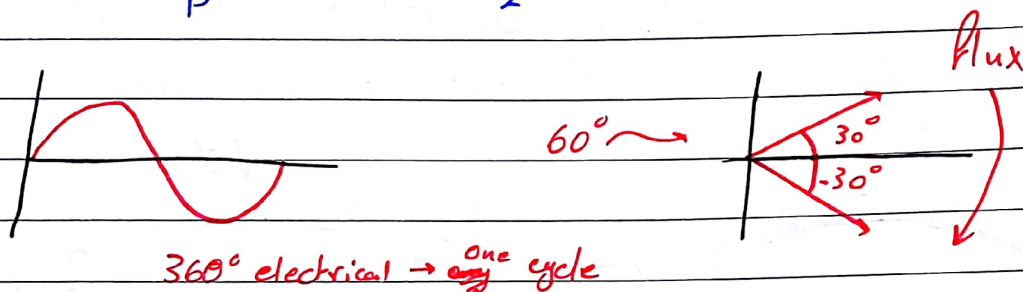 flux
60° 30°
-30°
360° electrical → One cycle